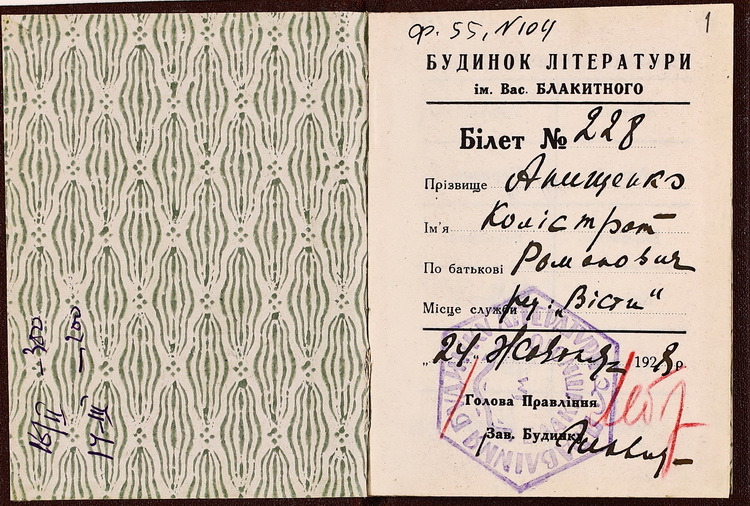 16/II – 300
17–III – 200
ф. 55, N 104
1
БУДИНОК ЛІТЕРАТУРИ
ім. Вас. БЛАКИТНОГО
Білет № 228
Прізвище Анищенко
Ім'я Калістрат
По батькові Романович
Місце служби ред. „Вісти"
„24„ Жовтня 1928 р
Голова Правління
Зав. Будинку